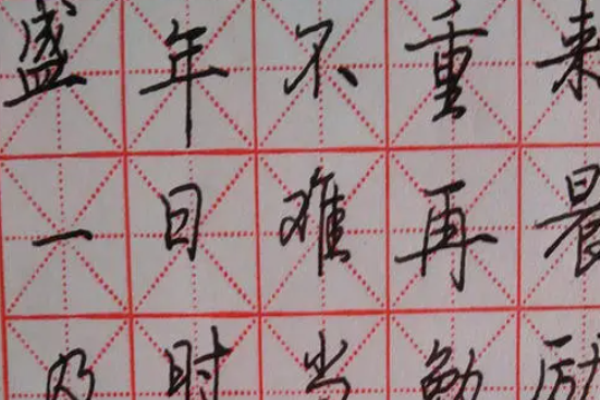 盛年不重来
一日难再晨
及时当勉励